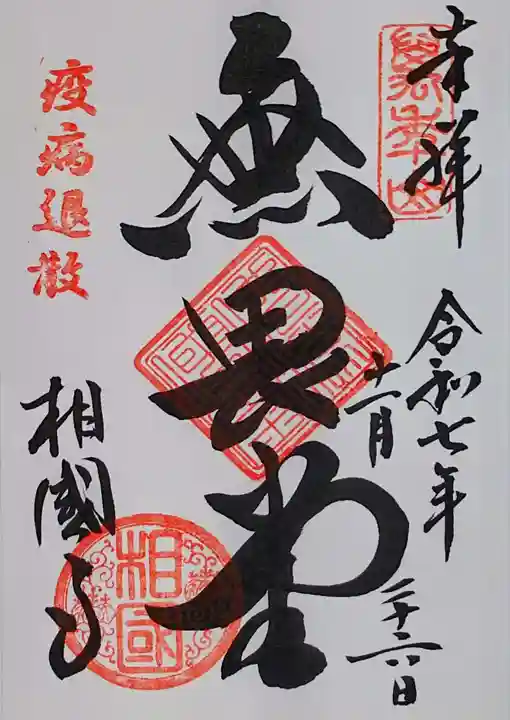 奉拝
萬年山
令和七年
十一月
二十六日
無畏堂
疫病退散
相國寺
相国